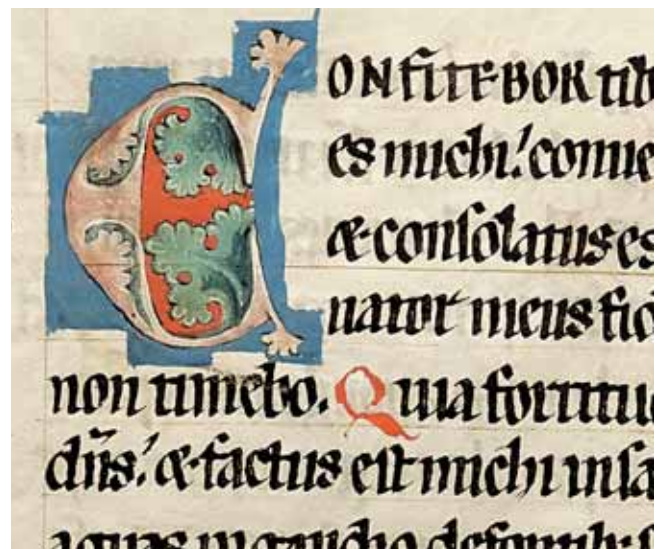 CONfiTEBOR tib
es michi! conue
& consolatus es
uator meus fid
non timebo. Quia fortitu
dn̄s! & factus est michi insa
aquas in gaudio de fontib; s